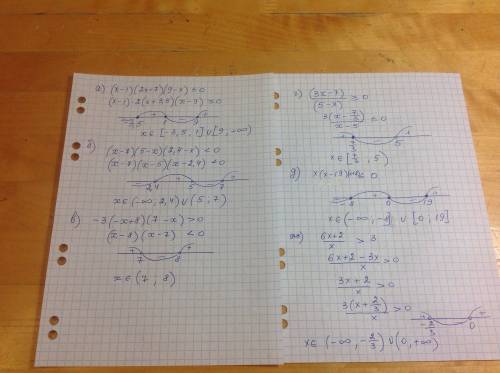 а) (x-1)(2x+7)(9-x) ≤ 0
(x-1)·2(x+3,5)(x-9) ≥ 0
-3,5 1 9
x ∈ [-3,5, 1] ∪ [9, +∞)
б) (x-7)(5-x)(2,4-x) < 0
(x-7)(x-5)(x-2,4) < 0
2,4 5 7
x ∈ (-∞, 2,4) ∪ (5; 7)
в) -3(-x+8)(7-x) > 0
(x-8)(x-7) < 0
7 8
x ∈ (7; 8)
г) (3x-7)/(5-x) ≥ 0
3(x-7/3)/(x-5) ≤ 0
7/3 5
x ∈ [7/3; 5)
д) ≤ 0
-8 0 19
x ∈ (-∞, -8] ∪ [0; 19]
(6x+2)/x > 3
(6x+2-3x)/x > 0
(3x+2)/x > 0
3(x+2/3)/x > 0
-2/3 0
x ∈ (-∞, -2/3) ∪ (0, +∞)